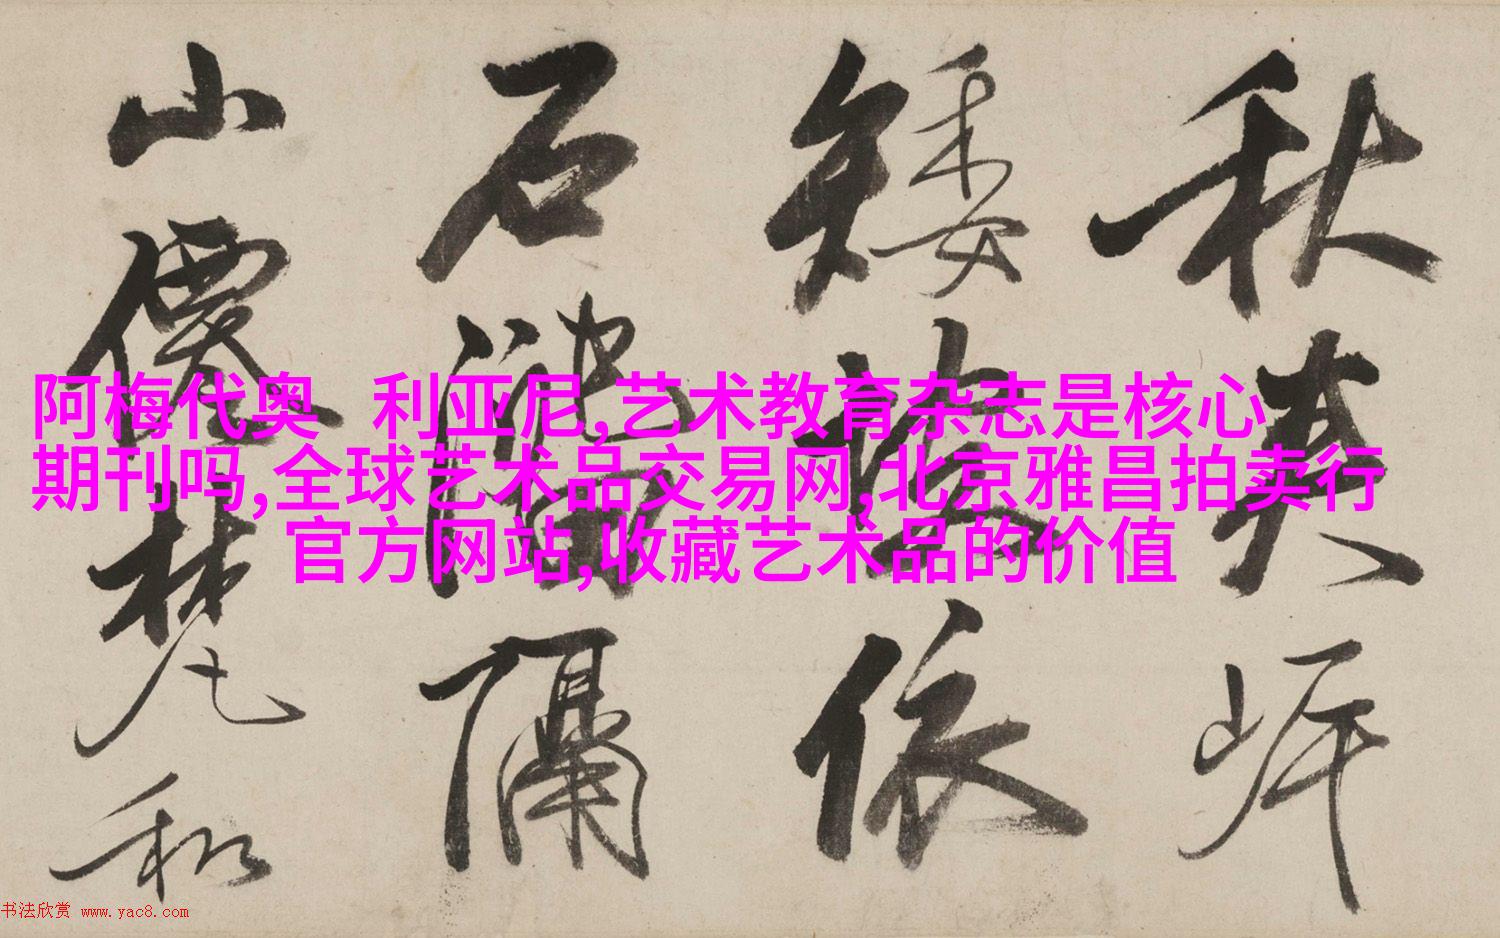 秋
矮依
石隔
山和
阿梅代奥 利亚尼,艺术教育杂志是核心
期刊吗,全球艺术品交易网,北京雅昌拍卖行
官方网站,收藏艺术品的价值
书法欣赏 www.yac8.com